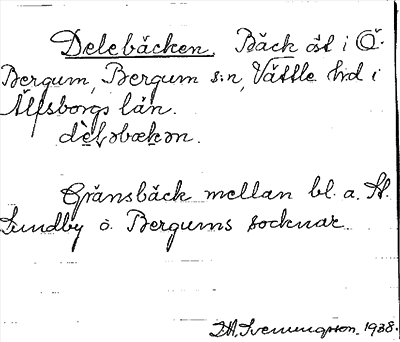 Delebäcken. Bäck öst i Ö.
Bergum, Bergum s:n, Vättle hd i
Älfsborgs län.
Gränsbäck mellan bl. a. St.
Lundby o. Bergums socknar.
1938.